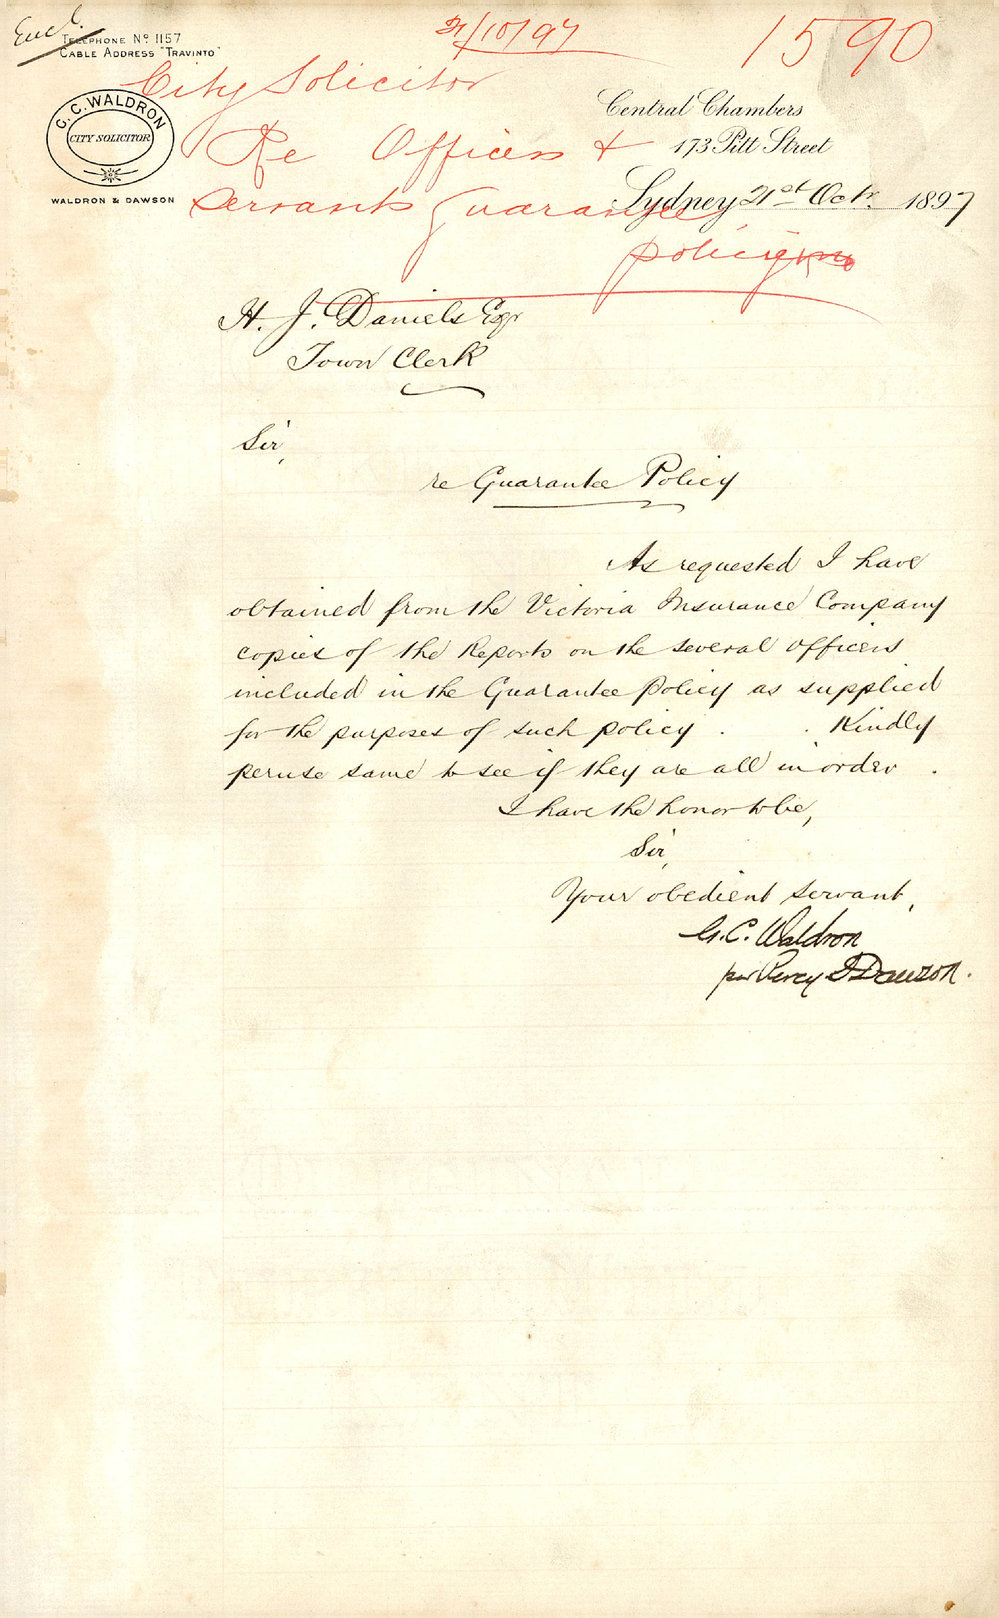 Encl.
21/10/97
1590
TELEPHONE Nº 1157
CABLE ADDRESS "TRAVINTO"
City Solicitor
Re Officers &
Servants Guarantee
policy
G. C. WALDRON
CITY SOLICITOR
WALDRON & DAWSON
Central Chambers
173 Pitt Street
Sydney 21st Octr. 1897
H. J. Daniels Esqr
Town Clerk
Sir,
re Guarantee Policy
As requested I have
obtained from the Victoria Insurance Company
copies of the Reports on the several officers
included in the Guarantee Policy as supplied
for the purposes of such policy . . Kindly
peruse same to see if they are all in order .
I have the honor to be,
Sir,
Your obedient servant,
G. C. Waldron
per Percy J Dawson.